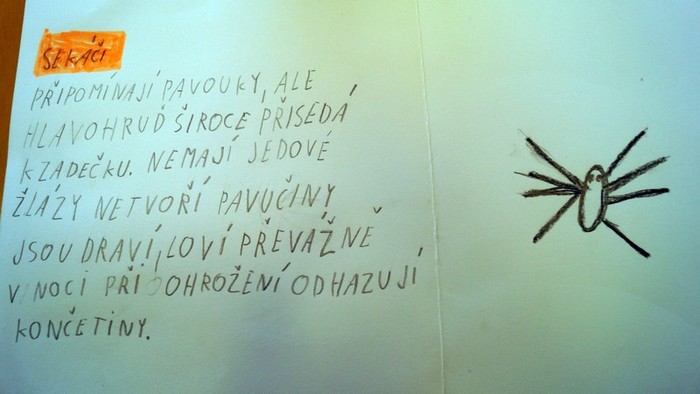 SEKÁČI
PŘIPOMÍNAJÍ PAVOUKY, ALE
HLAVOHRUĎ ŠIROCE PŘISEDÁ
K ZADEČKU. NEMAJÍ JEDOVÉ
ŽLÁZY NETVOŘÍ PAVUČINY
JSOU DRAVÍ, LOVÍ PŘEVÁŽNĚ
V NOCI PŘI OHROŽENÍ ODHAZUJÍ
KONČETINY.